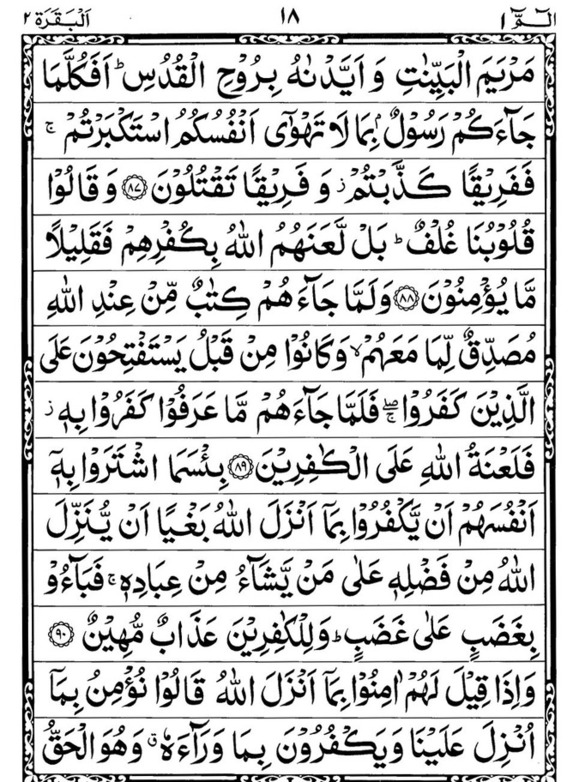 الٓمّٓ ١ ١٨ اَلْبَقَرَة ٢
مَرْيَمَ الْبَيِّنٰتِ وَ اَيَّدْنٰهُ بِرُوْحِ الْقُدُسِ ؕ اَفَكُلَّمَا
جَآءَكُمْ رَسُوْلٌۢ بِمَا لَا تَهْوٰۤى اَنْفُسُكُمُ اسْتَكْبَرْتُمْ ۚ
فَفَرِيْقًا كَذَّبْتُمْ ؗ وَ فَرِيْقًا تَقْتُلُوْنَ ﴿۸۷﴾ وَ قَالُوْا
قُلُوْبُنَا غُلْفٌ ؕ بَلْ لَّعَنَهُمُ اللّٰهُ بِكُفْرِهِمْ فَقَلِيْلًا
مَّا يُؤْمِنُوْنَ ﴿۸۸﴾ وَلَمَّا جَآءَهُمْ كِتٰبٌ مِّنْ عِنْدِ اللّٰهِ
مُصَدِّقٌ لِّمَا مَعَهُمْ ۙ وَ كَانُوْا مِنْ قَبْلُ يَسْتَفْتِحُوْنَ عَلَى
الَّذِيْنَ كَفَرُوْا ۚۖ فَلَمَّا جَآءَهُمْ مَّا عَرَفُوْا كَفَرُوْا بِهٖ ؗ
فَلَعْنَةُ اللّٰهِ عَلَى الْكٰفِرِيْنَ ﴿۸۹﴾ بِئْسَمَا اشْتَرَوْا بِهٖۤ
اَنْفُسَهُمْ اَنْ يَّكْفُرُوْا بِمَاۤ اَنْزَلَ اللّٰهُ بَغْيًا اَنْ يُّنَزِّلَ
اللّٰهُ مِنْ فَضْلِهٖ عَلٰى مَنْ يَّشَآءُ مِنْ عِبَادِهٖ ۚ فَبَآءُوْ
بِغَضَبٍ عَلٰى غَضَبٍ ؕ وَلِلْكٰفِرِيْنَ عَذَابٌ مُّهِيْنٌ ﴿۹۰﴾
وَاِذَا قِيْلَ لَهُمْ اٰمِنُوْا بِمَاۤ اَنْزَلَ اللّٰهُ قَالُوْا نُؤْمِنُ بِمَاۤ
اُنْزِلَ عَلَيْنَا وَيَكْفُرُوْنَ بِمَا وَرَآءَهٗ ۗ وَهُوَ الْحَقُّ